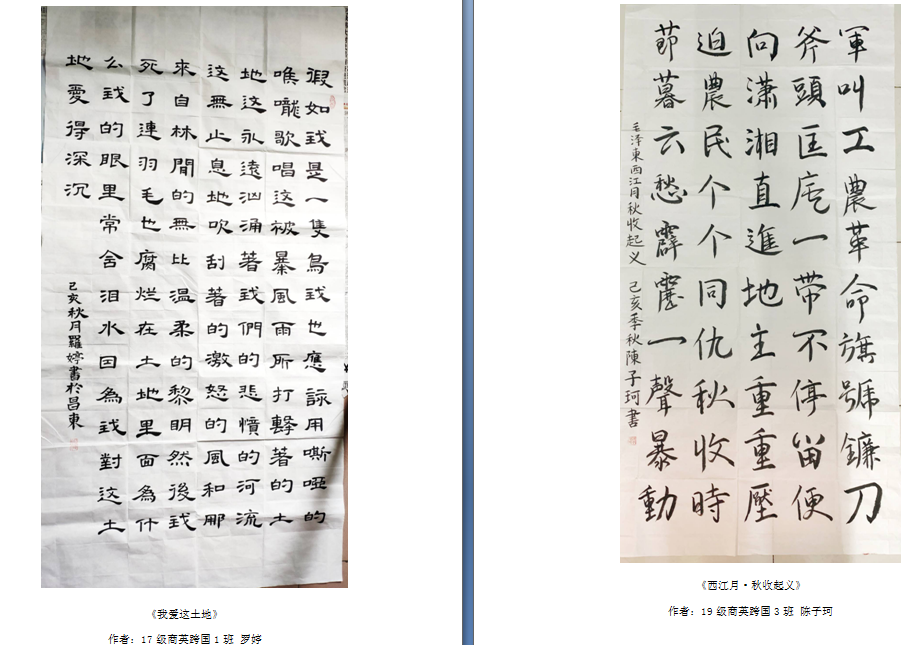 假如我是一隻鳥我也應詠用嘶啞的
喉嚨歌唱这被暴風雨所打擊著的土
地这永遠汹涌著我們的悲憤的河流
这無止息地吹刮著的激怒的風和那
來自林間的無比溫柔的黎明然後我
死了連羽毛也腐烂在土地里面為什
么我的眼里常含泪水因為我對这土
地愛得深沉
己亥秋月羅婷書於昌東
《我爱这土地》
作者：17级商英跨国1班 罗婷
軍叫工農革命旗號鐮刀
斧頭匡庐一帶不停留便
向潇湘直進地主重重壓
迫農民个个同仇秋收時
節暮云愁霹靂一聲暴動
毛泽東西江月秋收起义 己亥季秋陳子珂書
《西江月·秋收起义》
作者：19级商英跨国3班 陈子珂